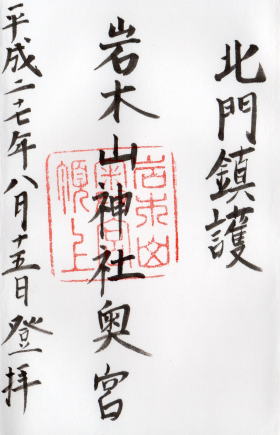 北門鎮護
岩木山神社奥宮
岩木山
頂上
平成二十七年八月十五日登拝